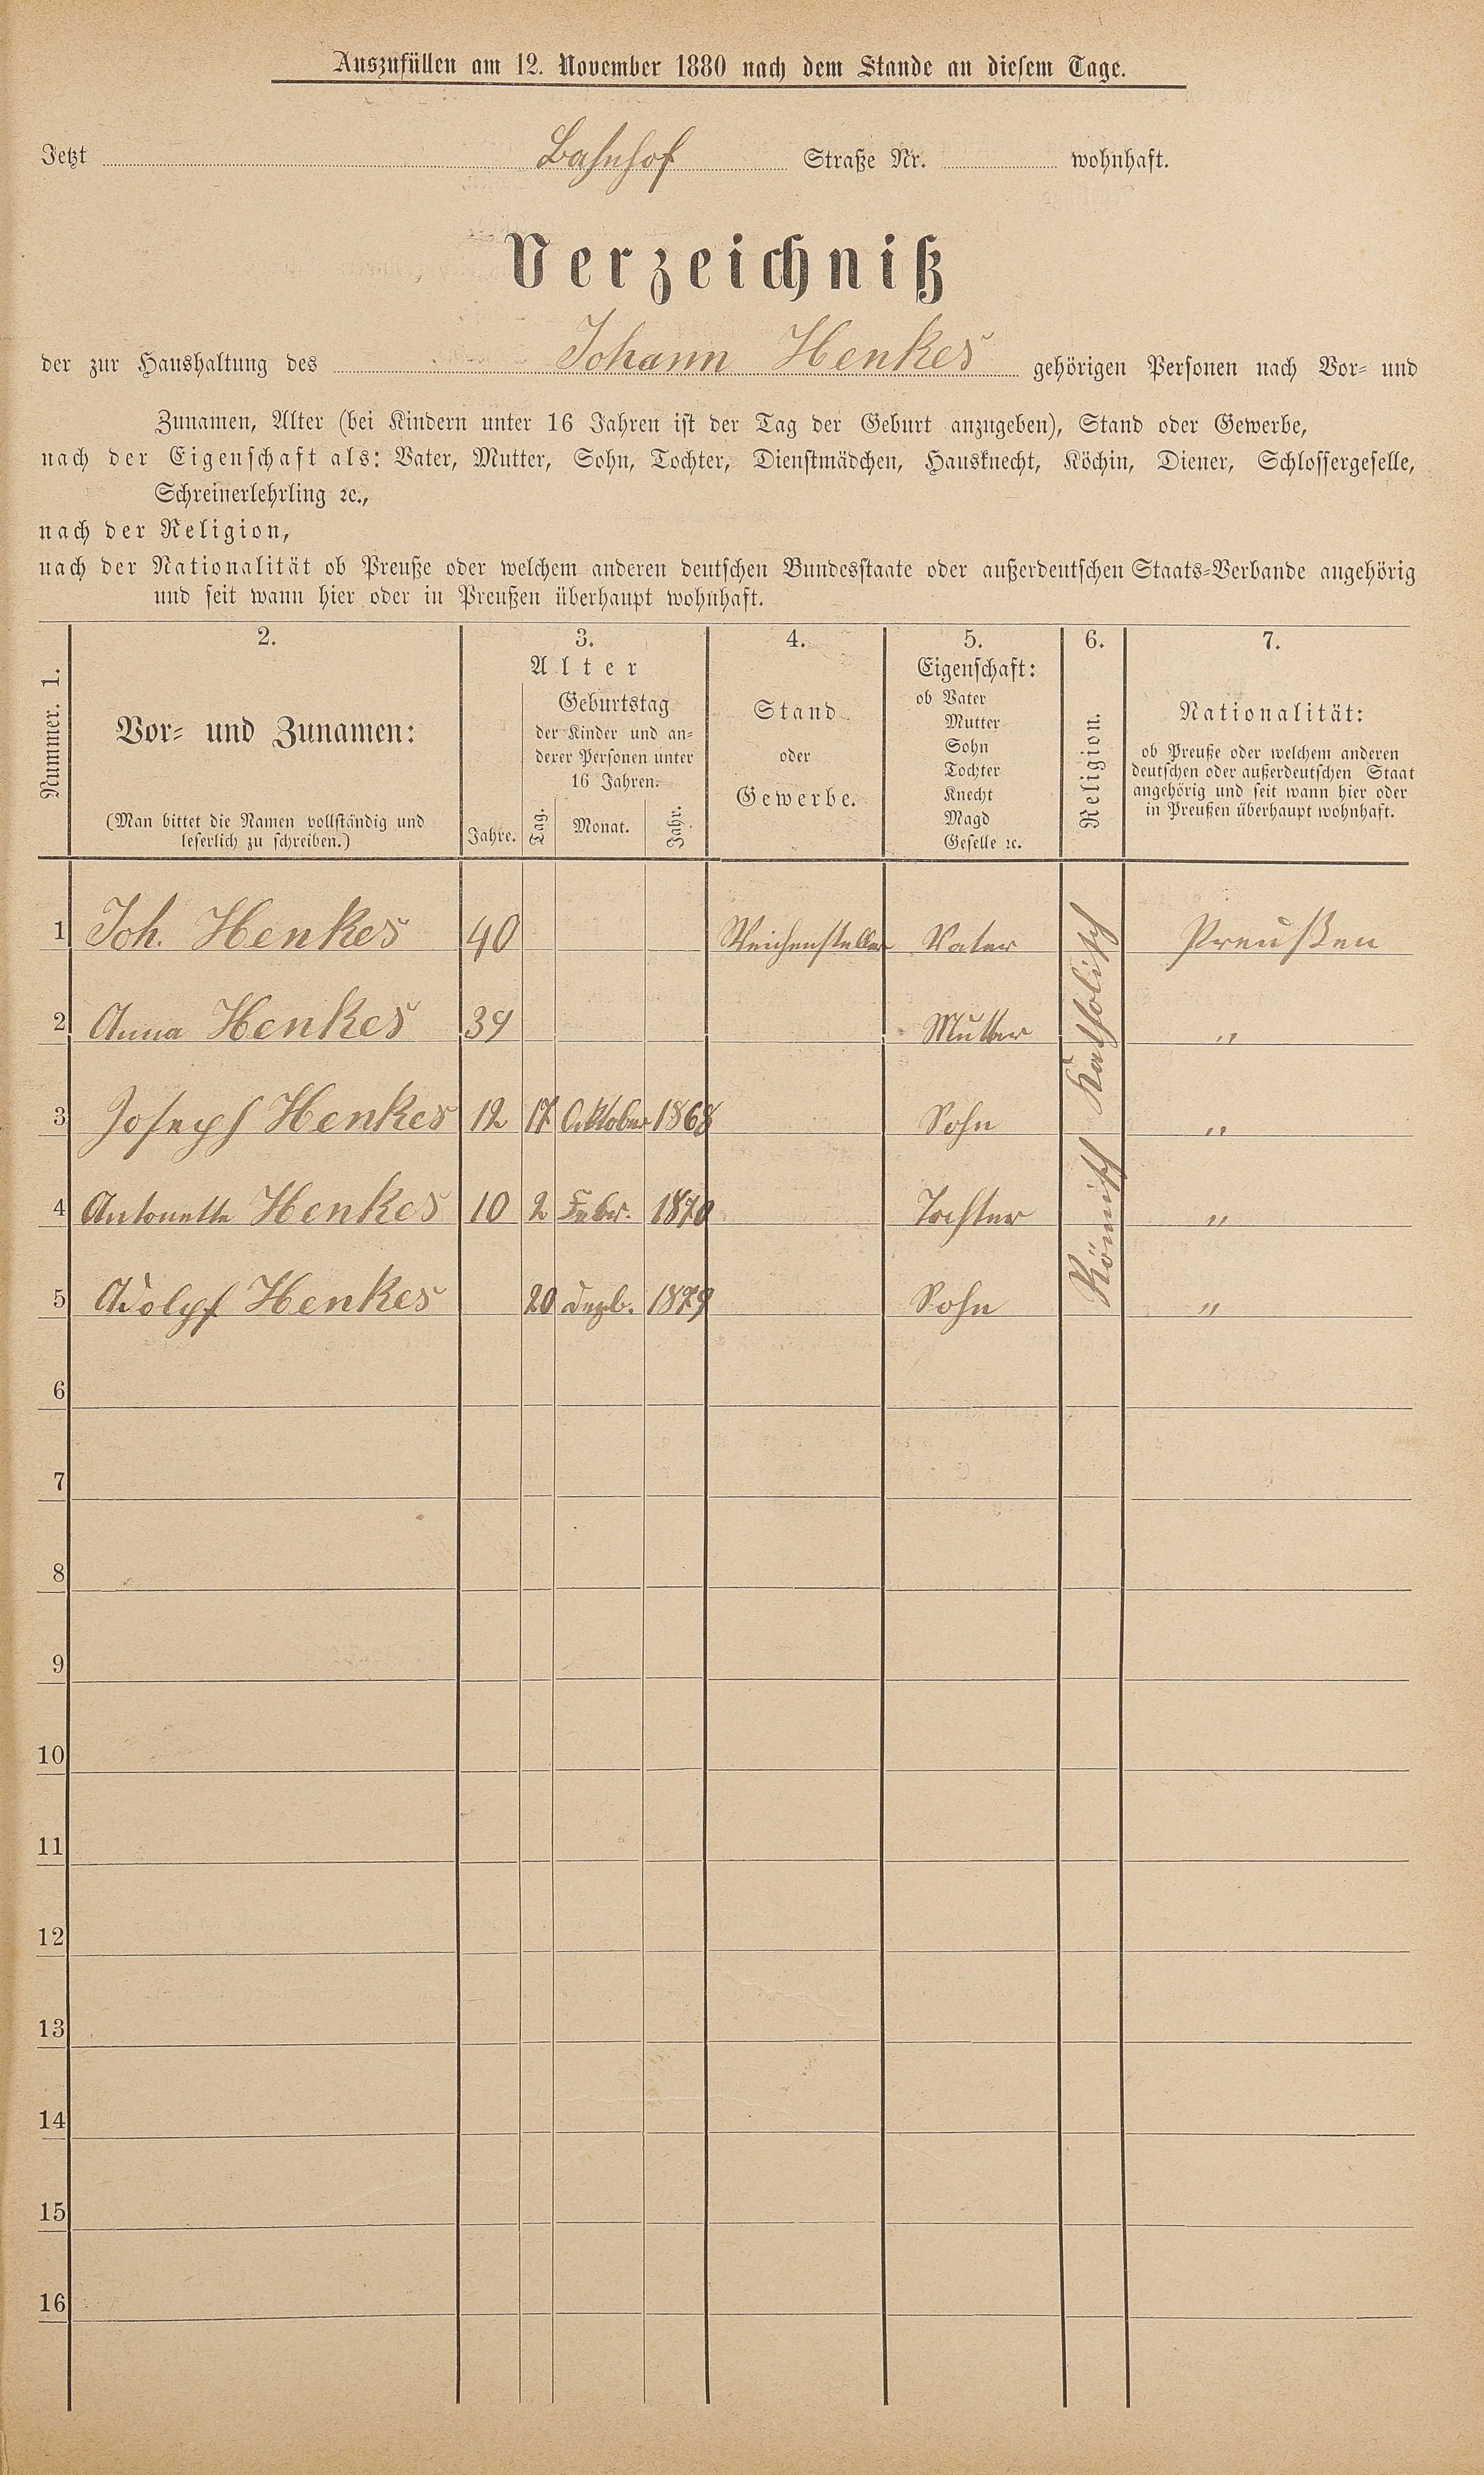 Auszufüllen am 12. November 1880 nach dem Stande an diesem Tage.
Jetzt Bahnhof Straße Nr. wohnhaft.
Verzeichniß
der zur Haushaltung des Johann Henkes gehörigen Personen nach Vor- und
Zunamen, Alter (bei Kindern unter 16 Jahren ist der Tag der Geburt anzugeben), Stand oder Gewerbe,
nach der Eigenschaft als: Vater, Mutter, Sohn, Tochter, Dienstmädchen, Hausknecht, Köchin, Diener, Schlossergeselle,
Schreinerlehrling ꝛc.,
nach der Religion,
nach der Nationalität ob Preuße oder welchem anderen deutschen Bundesstaate oder außerdeutschen Staats-Verbande angehörig
und seit wann hier oder in Preußen überhaupt wohnhaft.
Nummer. 1.
2.
Vor- und Zunamen:
(Man bittet die Namen vollständig und
leserlich zu schreiben.)
3.
Alter
Jahre.
Geburtstag
der Kinder und an-
derer Personen unter
16 Jahren.
Tag. Monat. Jahr.
4.
Stand
oder
Gewerbe.
5.
Eigenschaft:
ob Vater
Mutter
Sohn
Tochter
Knecht
Magd
Geselle ꝛc.
6.
Religion.
7.
Nationalität:
ob Preuße oder welchem anderen
deutschen oder außerdeutschen Staat
angehörig und seit wann hier oder
in Preußen überhaupt wohnhaft.
1 Joh. Henkes 40 Weichensteller Vater Preußen
2 Anna Henkes 39 Mutter "
3 Joseph Henkes 12 17 Oktober 1868 Sohn "
4 Antonette Henkes 10 2 Febr. 1870 Tochter "
5 Adolph Henkes 20 Dezb. 1879 Sohn "
Römisch Katholisch
6
7
8
9
10
11
12
13
14
15
16